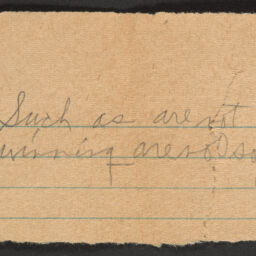 Such as are not
winning are not so